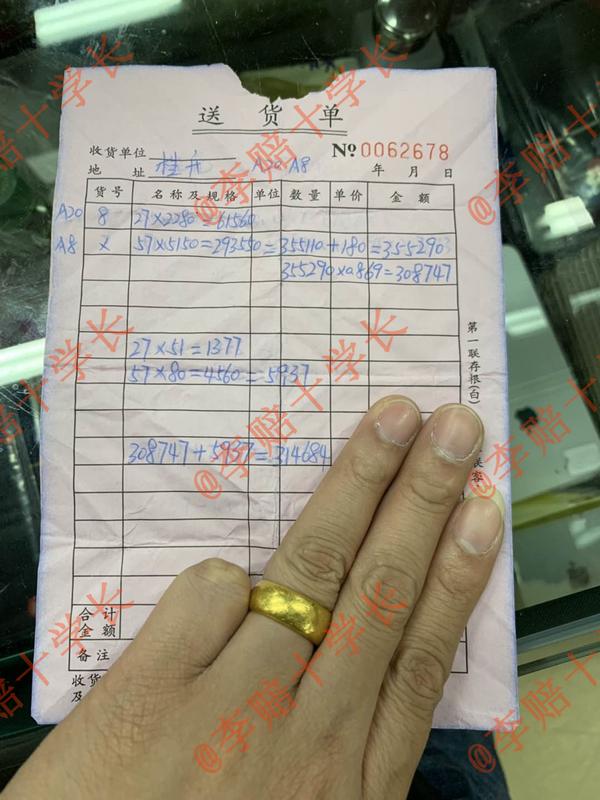 送货单
收货单位 桂舟 №0062678
地址 A20 A8 年 月 日
货号 名称及规格 单位 数量 单价 金额
A20 8 27×2280=61560
A8 X 57×5150=293550=355110+180=355290
355290×0.869=308747
27×51=1377
57×80=4560=5937
308747+5937=314684
合计金额
备注
收货
及
第一联存根(白)
@李赔十学长
@李赔十学长
@李赔十学长
@李赔十学长
@李赔十学长
@李赔十学长